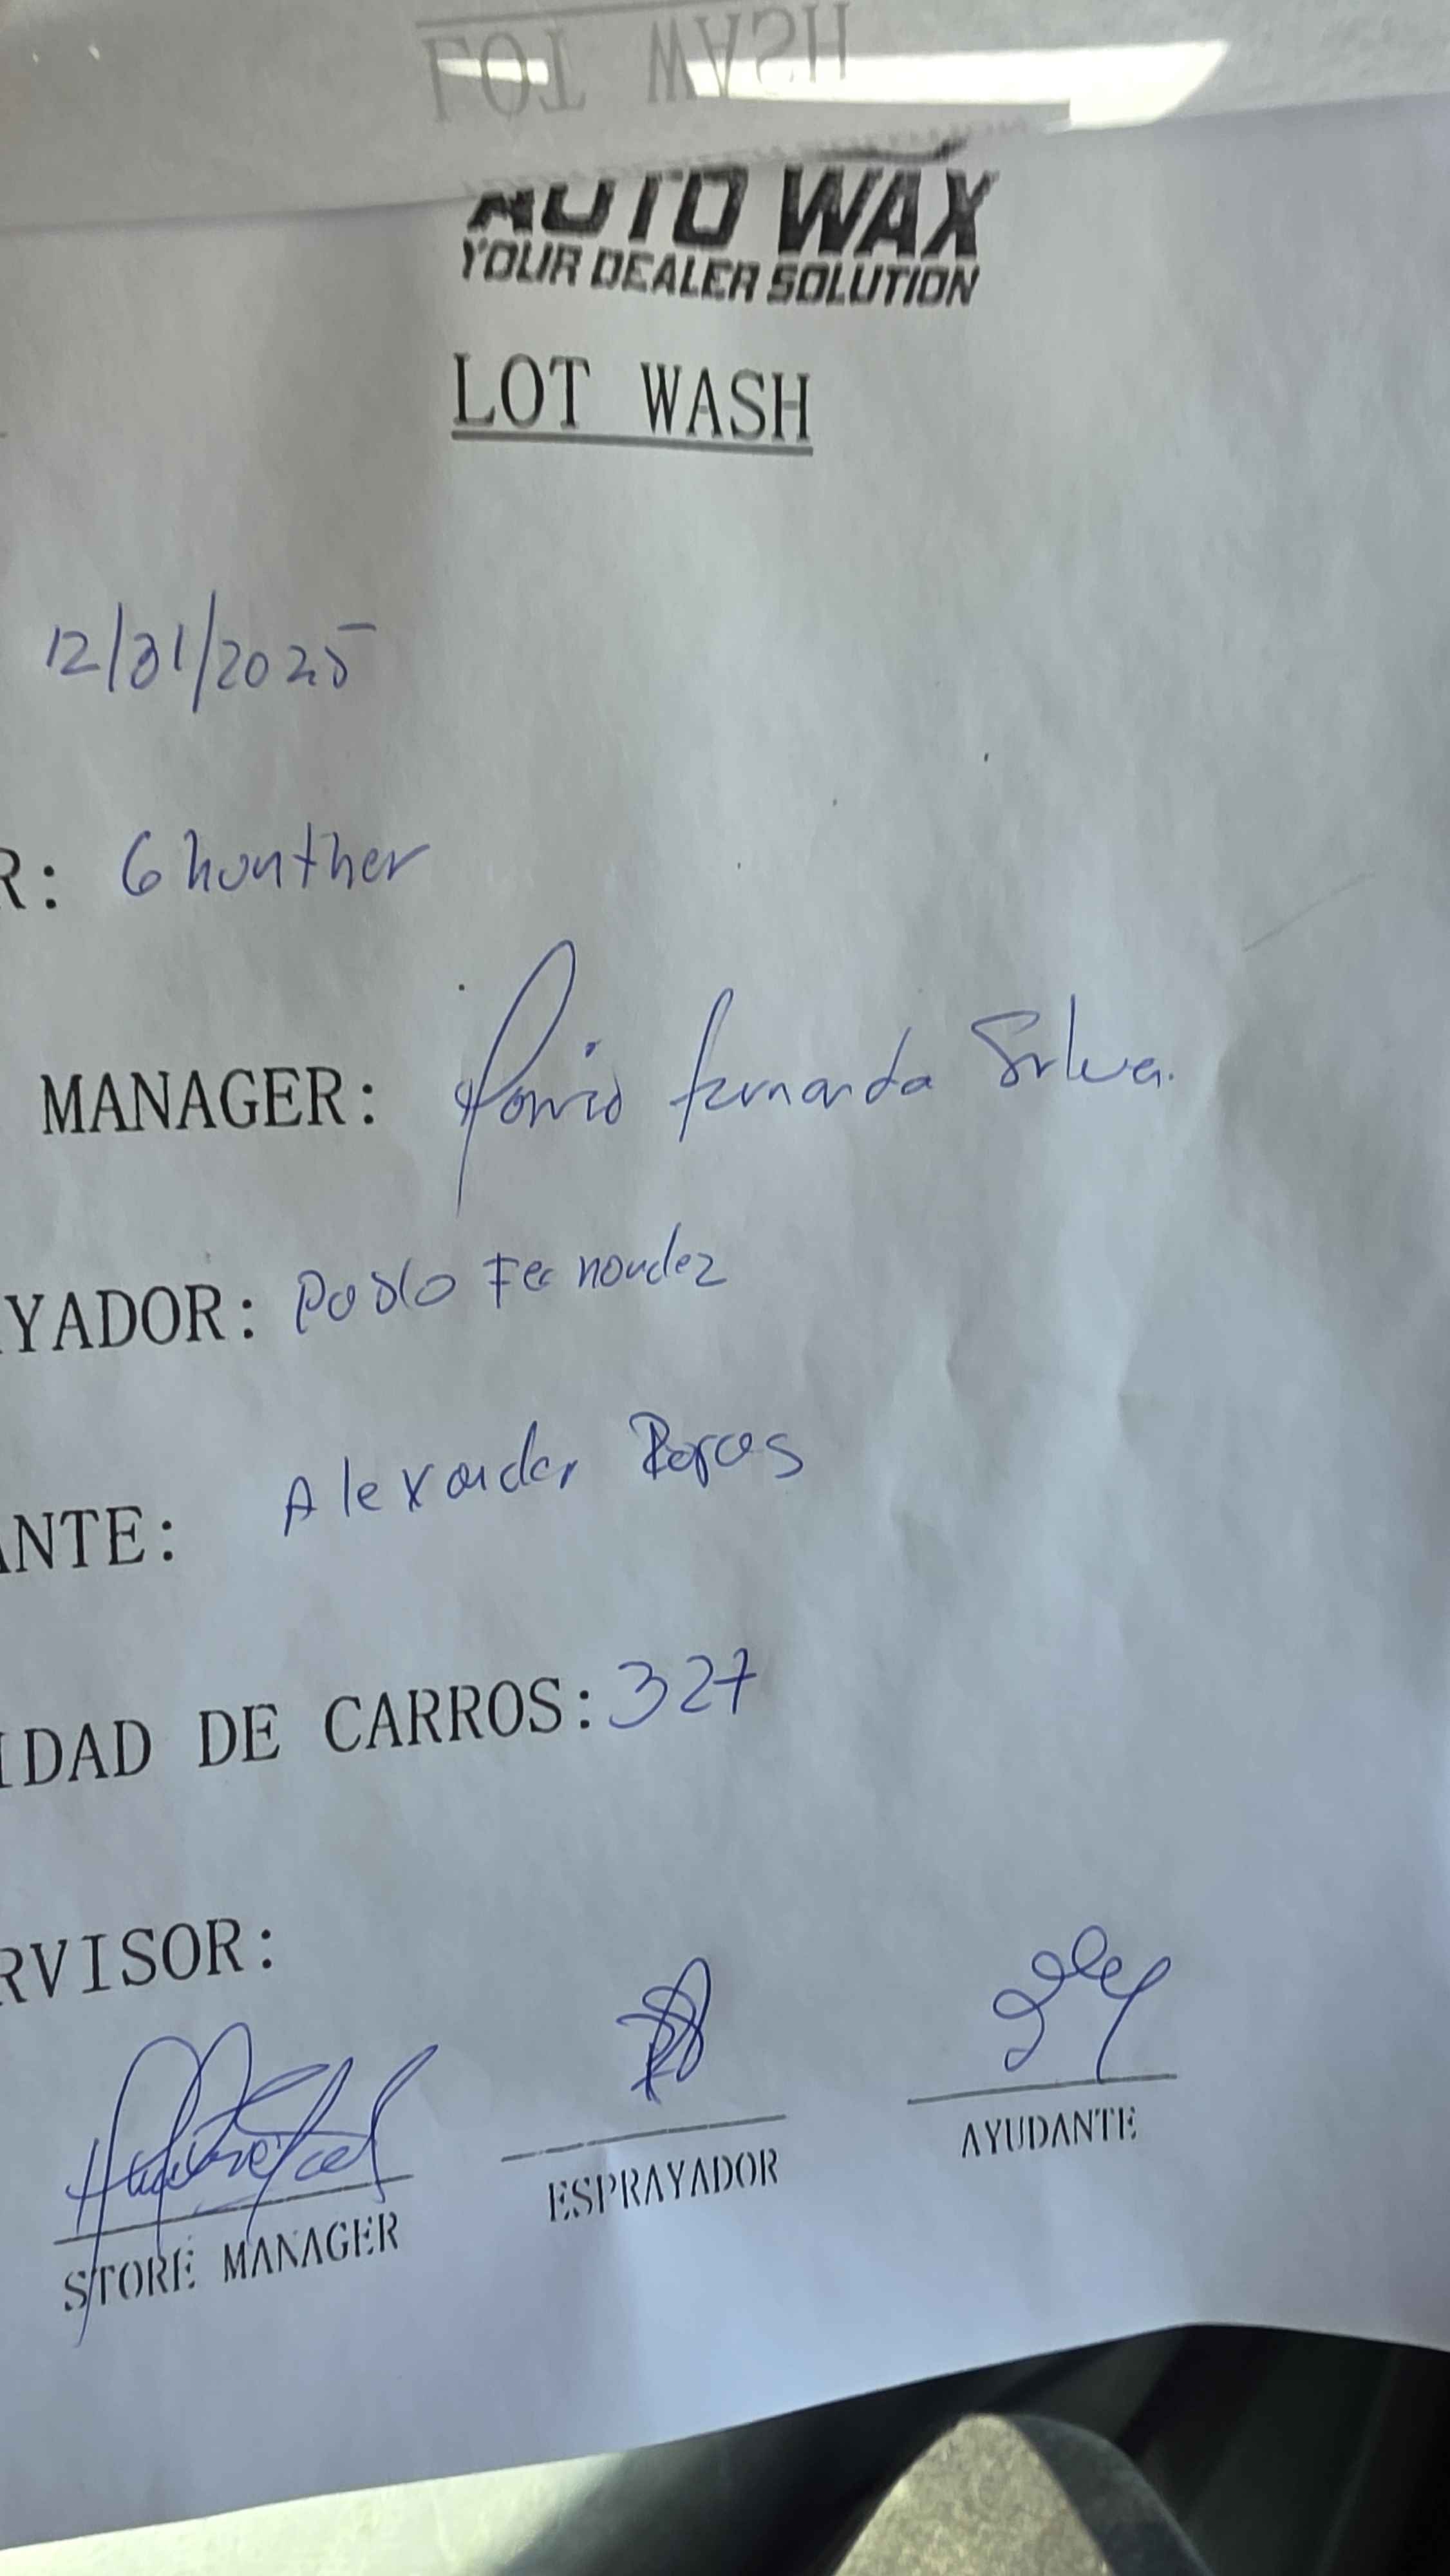 LOT WASH
AUTO WAX
YOUR DEALER SOLUTION
LOT WASH
12/31/2025
R: Ghunther
MANAGER: Fernanda Silva.
YADOR: Pablo Fernandez
ANTE: Alexander
IDAD DE CARROS: 327
RVISOR:
STORE MANAGER ESPRAYADOR AYUDANTE